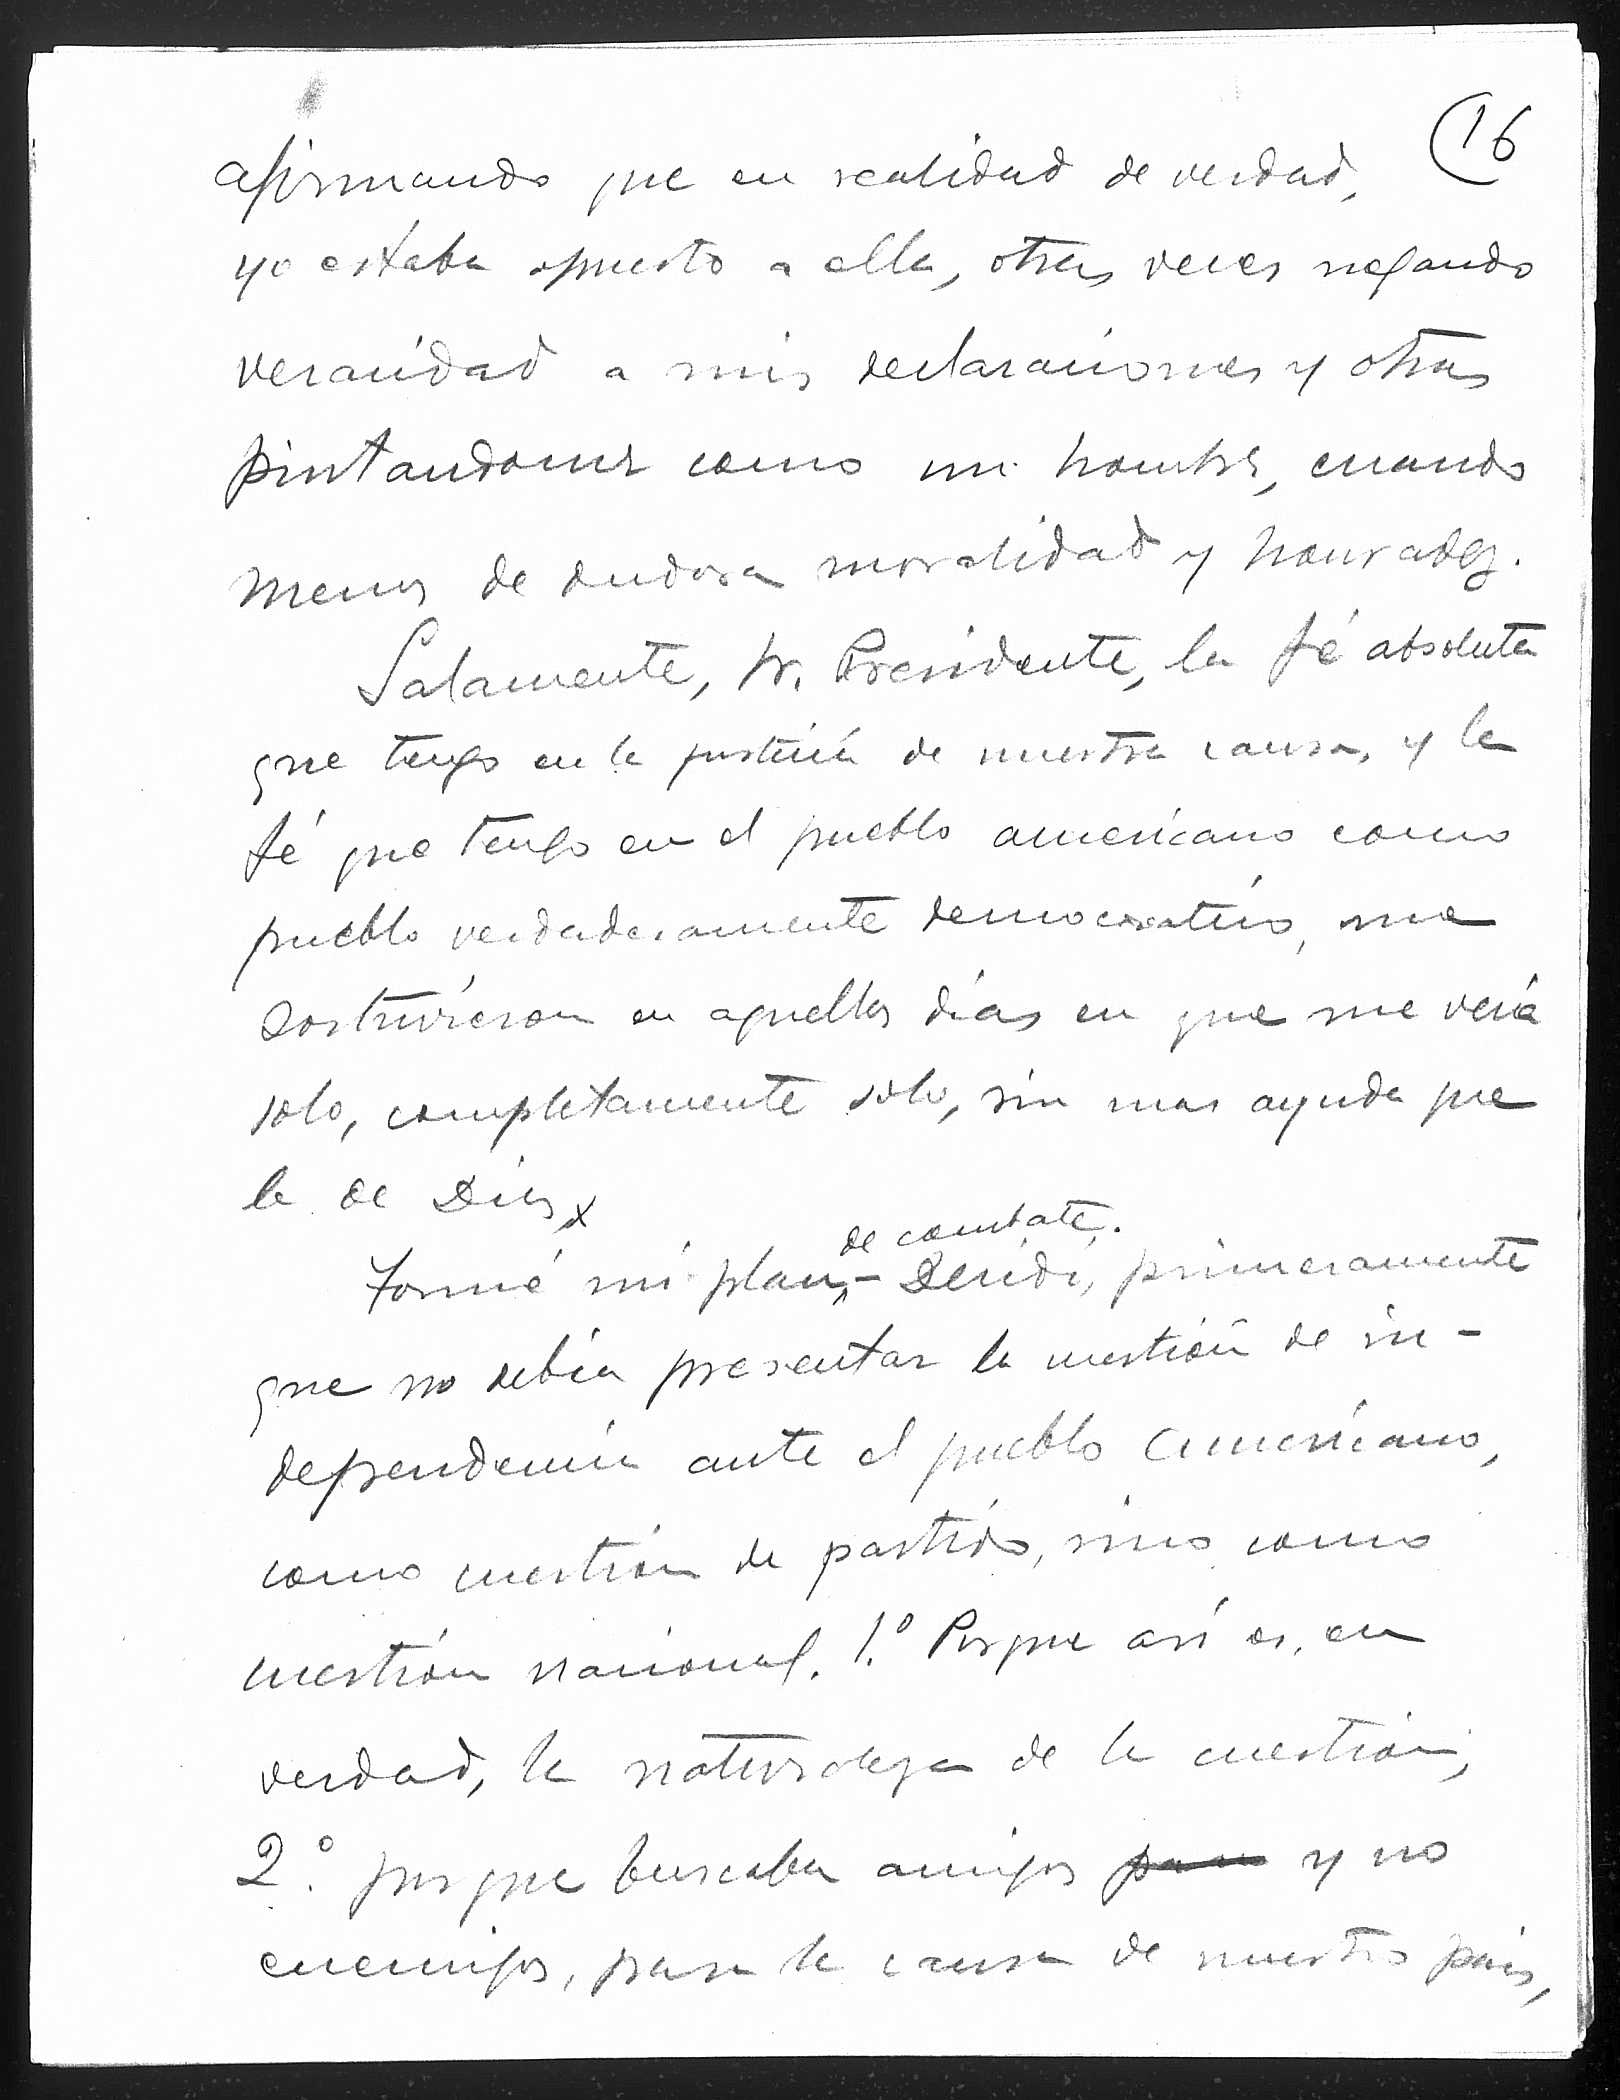 16
afirmando que en realidad de verdad,
yo estaba opuesto a ella, otras veces negando
veracidad a mis declaraciones y otras
pintandome como un hombre, cuando
menos de dudosa moralidad y honradez.
Solamente, Sr. Presidente, la fé absoluta
que tengo en la justicia de nuestra causa, y la
fé que tengo en el pueblo americano como
pueblo verdaderamente democratico, me
sostuvieron en aquellos días en que me veía
solo, completamente solo, sin mas ayuda que
la de Dios
de combate.
Formé mi plan,- Decidí, primeramente
que no debía presentar la cuestión de in-
dependencia ante el pueblo Americano,
como cuestión de partido, sino como
cuestión nacional. 1.º Porque así es, en
verdad, la naturaleza de la cuestión;
2.º porque buscaba amigos y no
enemigos, para la causa de nuestro país,